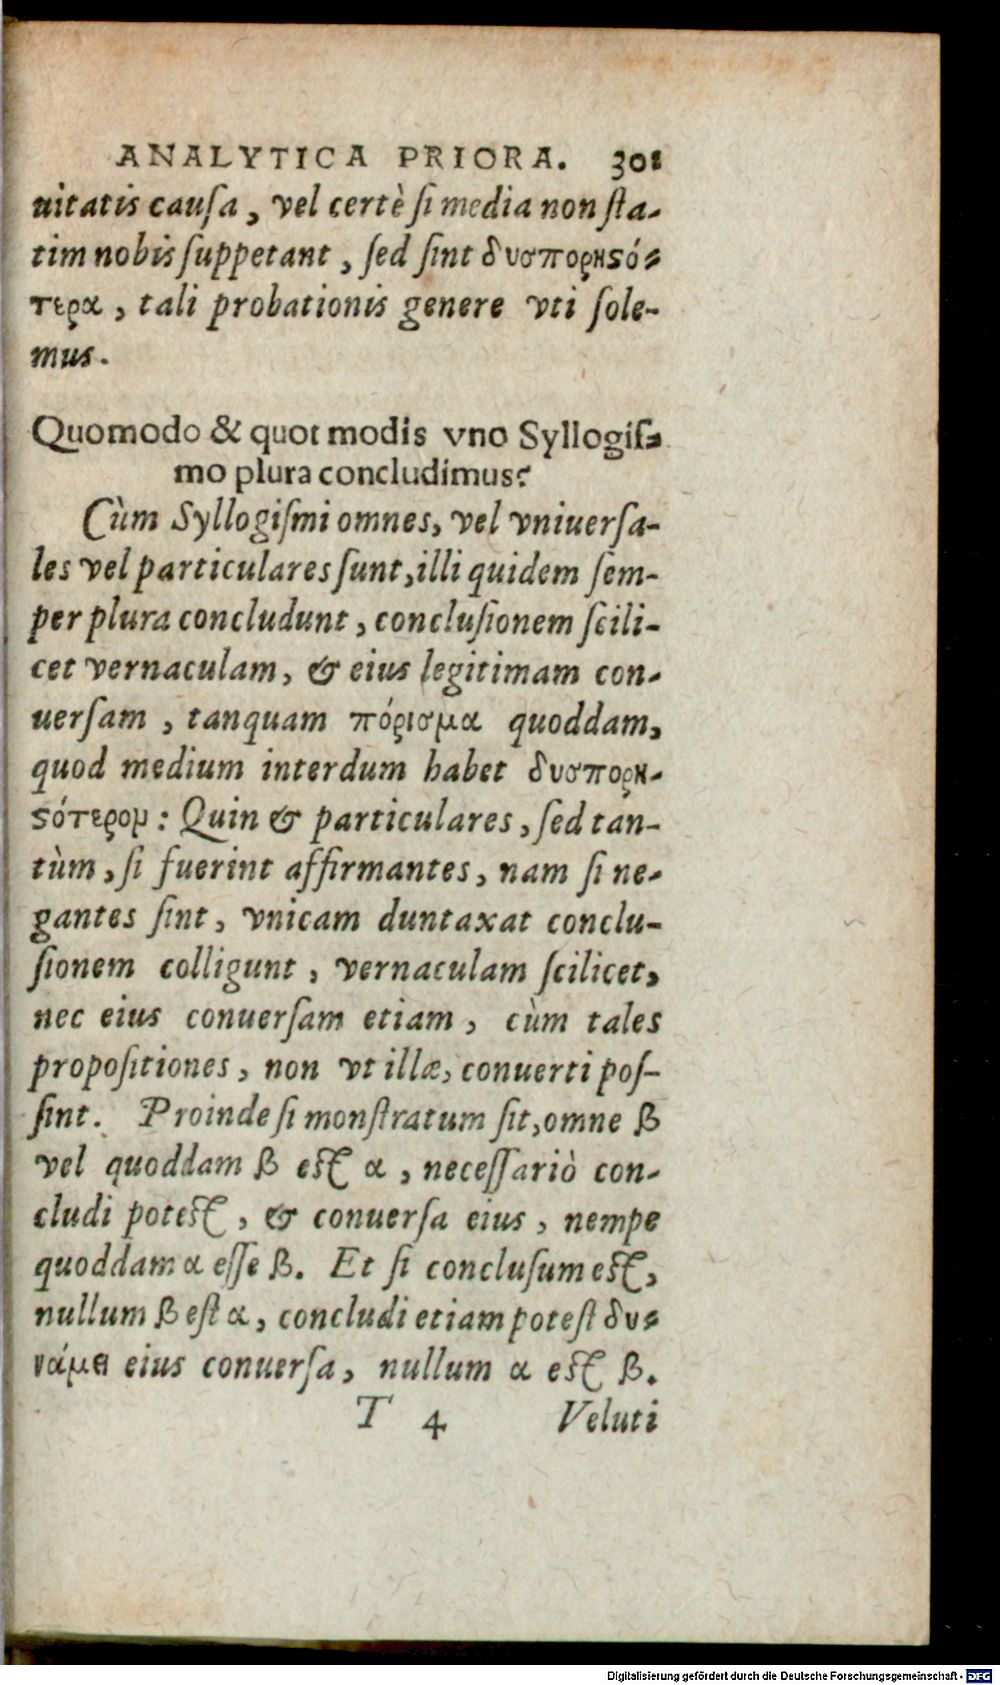 ANALYTICA PRIORA. 301
uitatis cauſa, vel certè ſi media non ſta-
tim nobis ſuppetant, ſed ſint δυσποριϛό-
τερα, tali probationis genere vti ſole-
mus.
Quomodo & quot modis vno Syllogiſ-
mo plura concludimus?
Cùm Syllogiſmi omnes, vel vniuerſa-
les vel particulares ſunt, illi quidem ſem-
per plura concludunt, concluſionem ſcili-
cet vernaculam, & eius legitimam con-
uerſam, tanquam πόρισμα quoddam,
quod medium interdum habet δυσπορι-
ϛότερομ: Quin & particulares, ſed tan-
tùm, ſi fuerint affirmantes, nam ſi ne-
gantes ſint, vnicam duntaxat conclu-
ſionem colligunt, vernaculam ſcilicet,
nec eius conuerſam etiam, cùm tales
propoſitiones, non vt illæ, conuerti poſ-
ſint. Proinde ſi monſtratum ſit, omne β
vel quoddam β eſt α, neceſſariò con-
cludi poteſt, & conuerſa eius, nempe
quoddam α eſſe β. Et ſi concluſum eſt,
nullum β eſt α, concludi etiam poteſt δυ-
νάμει eius conuerſa, nullum α eſt β.
T 4 Veluti
Digitalisierung gefördert durch die Deutsche Forschungsgemeinschaft - DFG